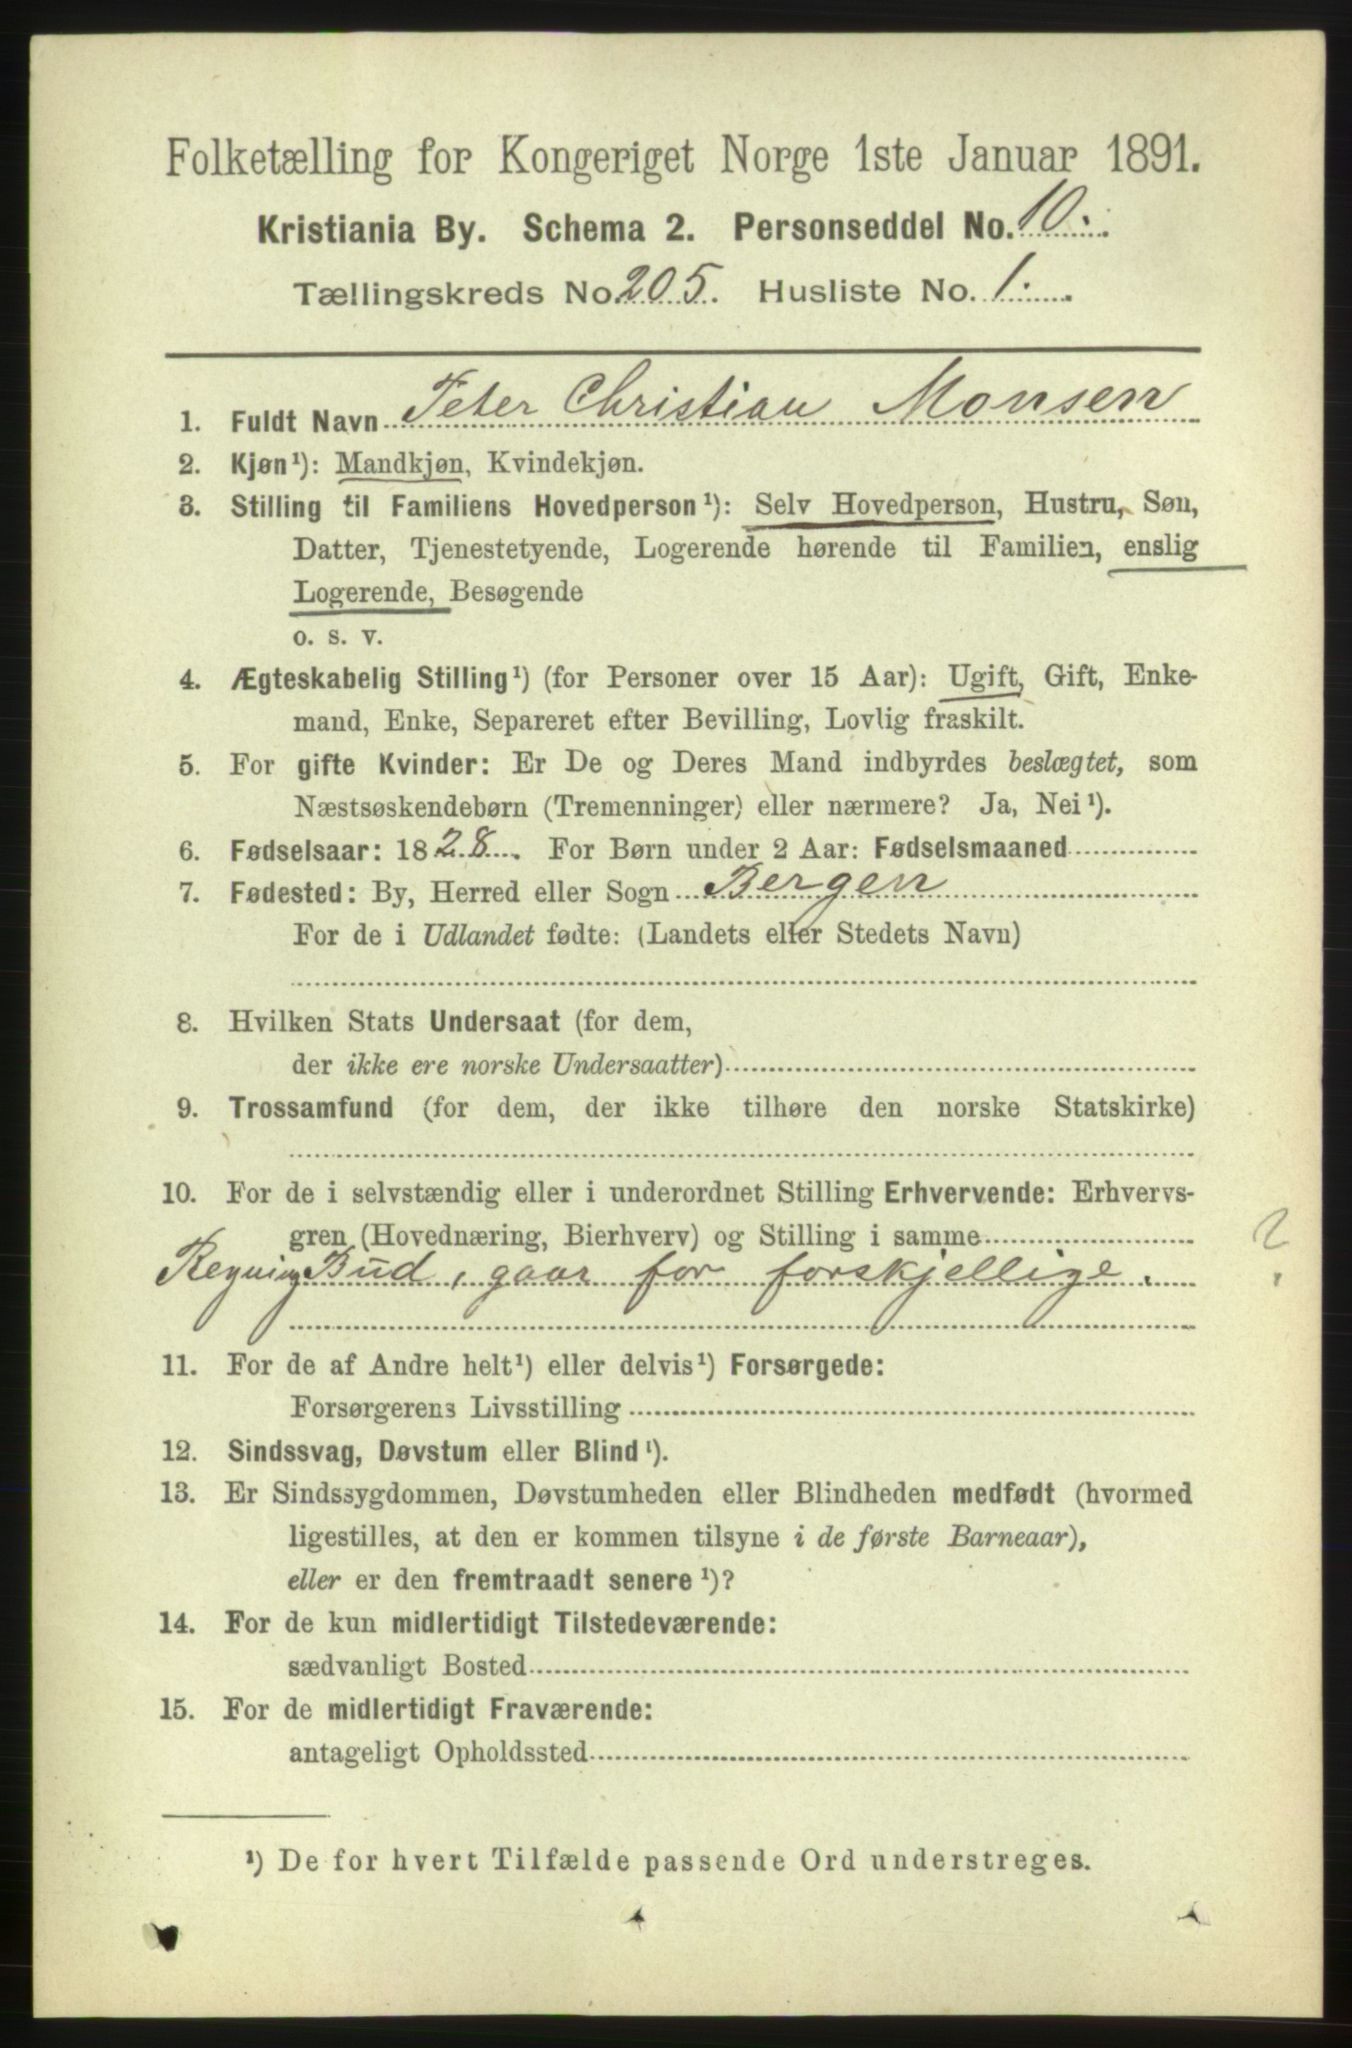 Folketælling for Kongeriget Norge 1ste Januar 1891.
Kristiania By. Schema 2. Personseddel No. 10.
Tællingskreds No. 205. Husliste No. 1.
1. Fuldt Navn Peter Christian Monsen
2. Kjøn¹): Mandkjøn, Kvindekjøn.
3. Stilling til Familiens Hovedperson¹): Selv Hovedperson, Hustru, Søn,
Datter, Tjenestetyende, Logerende hørende til Familien, enslig
Logerende, Besøgende
o. s. v.
4. Ægteskabelig Stilling¹) (for Personer over 15 Aar): Ugift, Gift, Enke-
mand, Enke, Separeret efter Bevilling, Lovlig fraskilt.
5. For gifte Kvinder: Er De og Deres Mand indbyrdes beslægtet, som
Næstsøskendebørn (Tremenninger) eller nærmere? Ja, Nei¹).
6. Fødselsaar: 1828. For Børn under 2 Aar: Fødselsmaaned
7. Fødested: By, Herred eller Sogn Bergen
For de i Udlandet fødte: (Landets eller Stedets Navn)
8. Hvilken Stats Undersaat (for dem,
der ikke ere norske Undersaatter)
9. Trossamfund (for dem, der ikke tilhøre den norske Statskirke)
10. For de i selvstændig eller i underordnet Stilling Erhvervende: Erhvervs-
gren (Hovednæring, Bierhverv) og Stilling i samme
?
Regnings Bud, gaar for forskjellige.
11. For de af Andre helt¹) eller delvis¹) Forsørgede:
Forsørgerens Livsstilling
12. Sindssvag, Døvstum eller Blind¹).
13. Er Sindssygdommen, Døvstumheden eller Blindheden medfødt (hvormed
ligestilles, at den er kommen tilsyne i de første Barneaar),
eller er den fremtraadt senere¹)?
14. For de kun midlertidigt Tilstedeværende:
sædvanligt Bosted
15. For de midlertidigt Fraværende:
antageligt Opholdssted
¹) De for hvert Tilfælde passende Ord understreges.